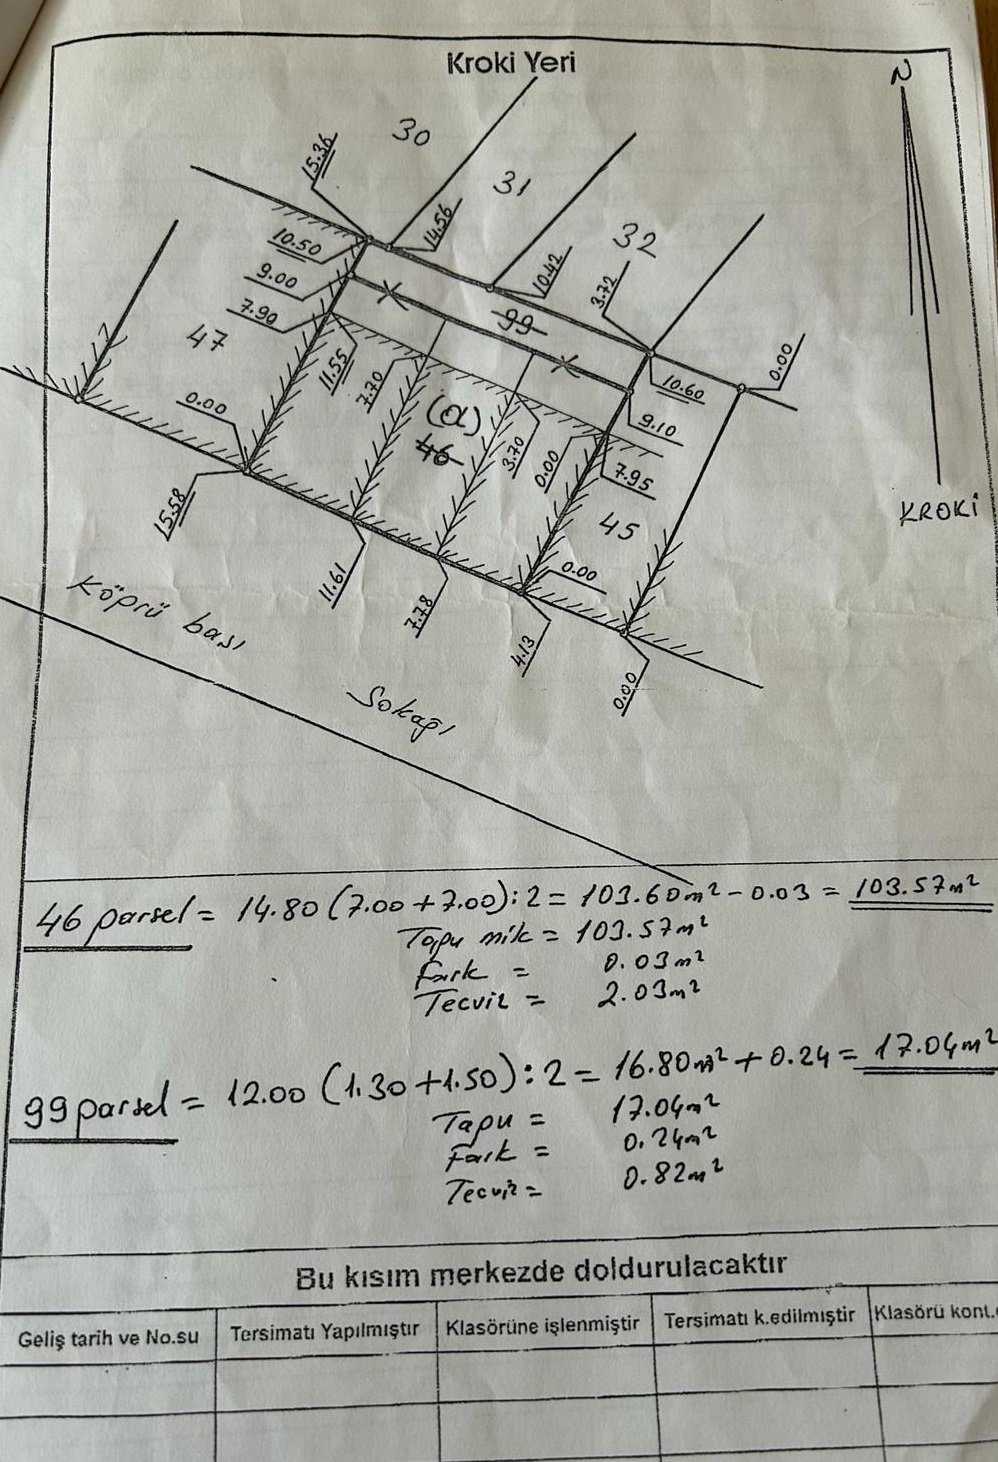 Kroki Yeri
N
30
15.36
31
14.56
32
10.50
10.42
9.00
3.72
7.90
99
47
0.00
11.55
7.70
10.60
(a)
9.10
0.00
46
3.70
0.00
7.95
15.58
45
KROKİ
11.61
0.00
7.78
Köprü başı
4.13
0.00
Sokağı
46 parsel = 14.80 (7.00 + 7.00) : 2 = 103.60 m² - 0.03 = 103.57 m²
Tapu mik = 103.57 m²
Fark = 0.03 m²
Tecviz = 2.03 m²
99 parsel = 12.00 (1.30 + 1.50) : 2 = 16.80 m² + 0.24 = 17.04 m²
Tapu = 17.04 m²
Fark = 0.24 m²
Tecviz = 0.82 m²
Bu kısım merkezde doldurulacaktır
Geliş tarih ve No.su Tersimatı Yapılmıştır Klasörüne işlenmiştir Tersimatı k.edilmıştir Klasörü kont.